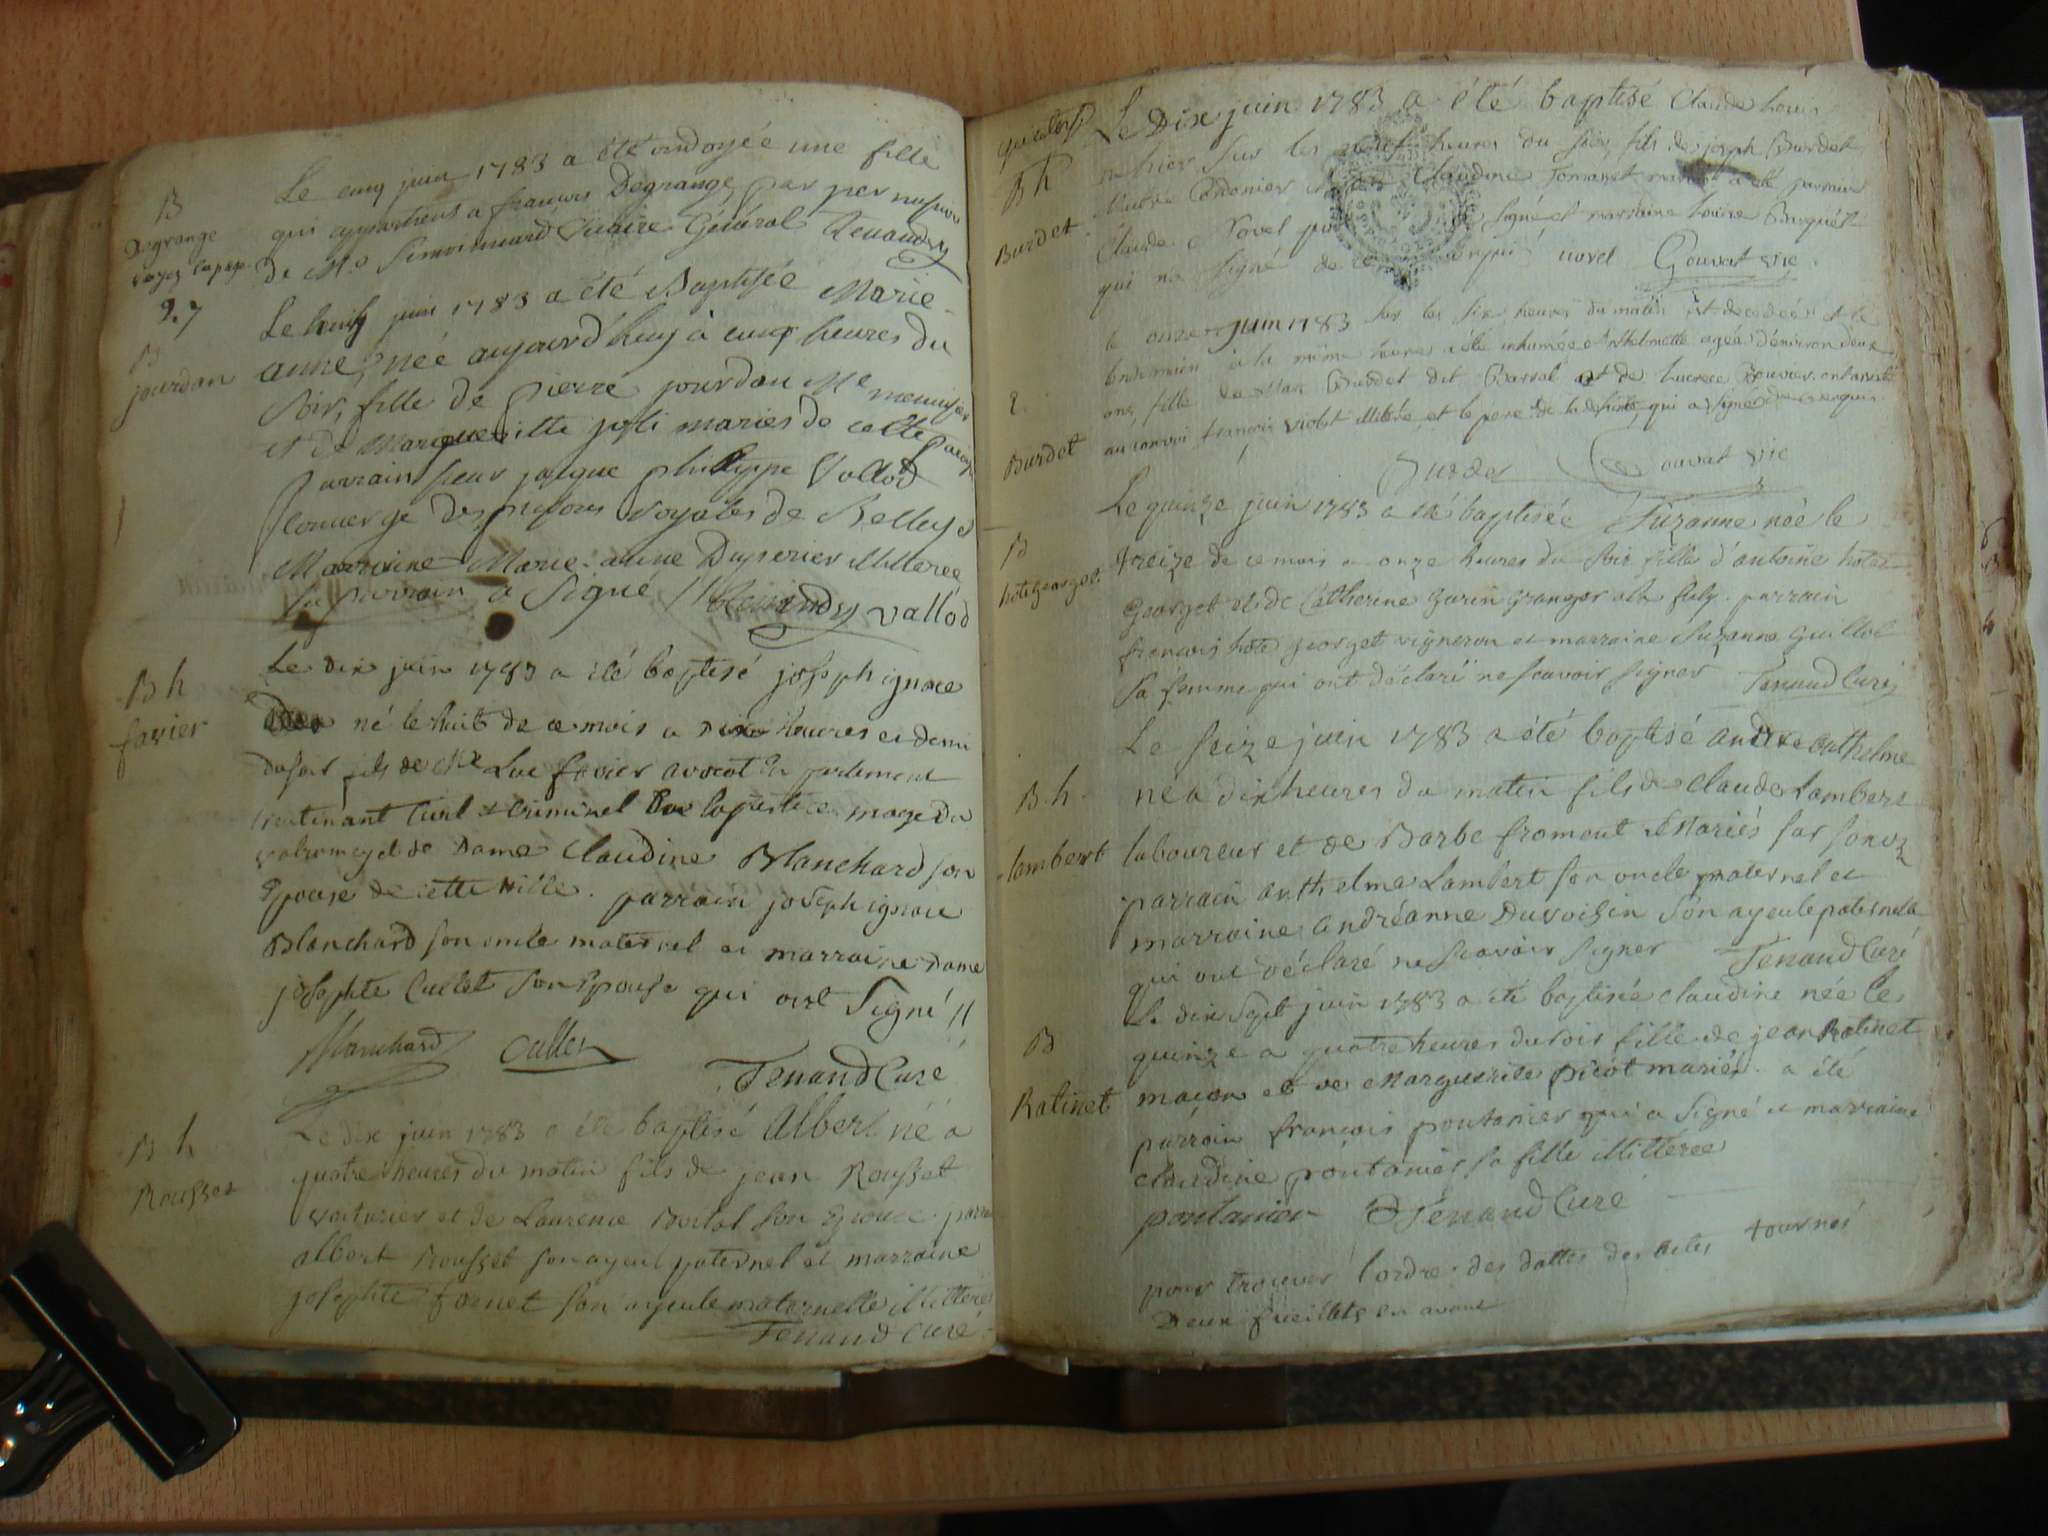 B
Degrange
voyez la pag.
27
Le cinq juin 1783 a été ondoyée une fille
qui appartient a francois Degrange par permission
de Mr. Vicaire Général Tenaud
B
jourdan
Le huit juin 1783 a été Baptisée Marie
anne, née aujourd'huy à cinq heures du
soir, fille de pierre jourdan Me menuisier
et de Margueritte joli mariés de cette paroisse
parrain sieur jaque philippe Vallod
Concierge des prisons royales de Belley &
Marraine Marie-anne Duperier illiterée
le parrain a signé // Tenaud vallod
B h
favier
Le dix juin 1783 a été baptisé joseph ignace
né le huit de ce mois a dix heures et demi
du soir fils de Me Luc favier avocat en parlement
lieutenant Civil & Criminel de la justice mage du
valromey et de Dame Claudine Blanchard son
Epouse de cette Ville. parrain joseph ignace
Blanchard son oncle maternel et marraine Dame
josephte Cullet son Epouse qui ont signé //
Blanchard Cullet
Tenaud Curé
B h
Rousset
Le dix juin 1783 a été baptisé albert né a
quatre heures du matin fils de jean Rousset
voiturier et de Laurence son Epouse. parrain
albert Rousset son ayeul paternel et marraine
josephte fornet son ayeule maternelle illitterés
Tenaud curé
B h
Burdet
Le Dix juin 1783 a été baptisé Claude Louis
né hier sur les neuf heures du soir, fils de joseph Burdet
Maitre Cordonier et de Claudine mariés a été parrain
Claude Novel qui signé et marraine Louise
qui na signé de ce enquis novel Gouvat vic
2.
Burdet
le onze juin 1783 sur les six heures du matin est decedée et le
lendemain à la même heure a été inhumée Anthelmette agée d'environ deux
ans, fille de Marc Burdet dit Barral et de Lucrece Bouvier. ont assisté
au convoi francois violet illitéré, et le pere de la defunte, qui a signé de ce enquis
Burdet Gouvat vic
B
hote georget.
Le quinze juin 1783 a été baptisée Suzanne née le
treize de ce mois a onze heures du soir fille d'antoine hote
Georget et de Catherine Gurin granger parrain
francois hote georget vigneron et marraine Suzanne Guillot
sa femme qui ont déclaré ne scavoir signer Tenaud Curé
B. h.
lambert
Le seize juin 1783 a été baptisé andre anthelme
né a dix heures du matin fils de claude Lambert
laboureur et de Barbe fromont Mariés
parrain anthelme Lambert son oncle paternel et
marraine andréanne Duvoisin son ayeule paternelle
qui ont déclaré ne scavoir signer Tenaud Curé
B
Ratinet
Le dix sept juin 1783 a été baptisée claudine née le
quinze a quatre heures du soir fille de jean Ratinet
maçon et de Marguerite picot mariés. a été
parrain françois pontanier qui a signé et marraine
claudine pontanier sa fille illitérée
pontanier Tenaud Curé
pour trouver l'ordre des dattes des actes tournés
Deux feuillets en avant